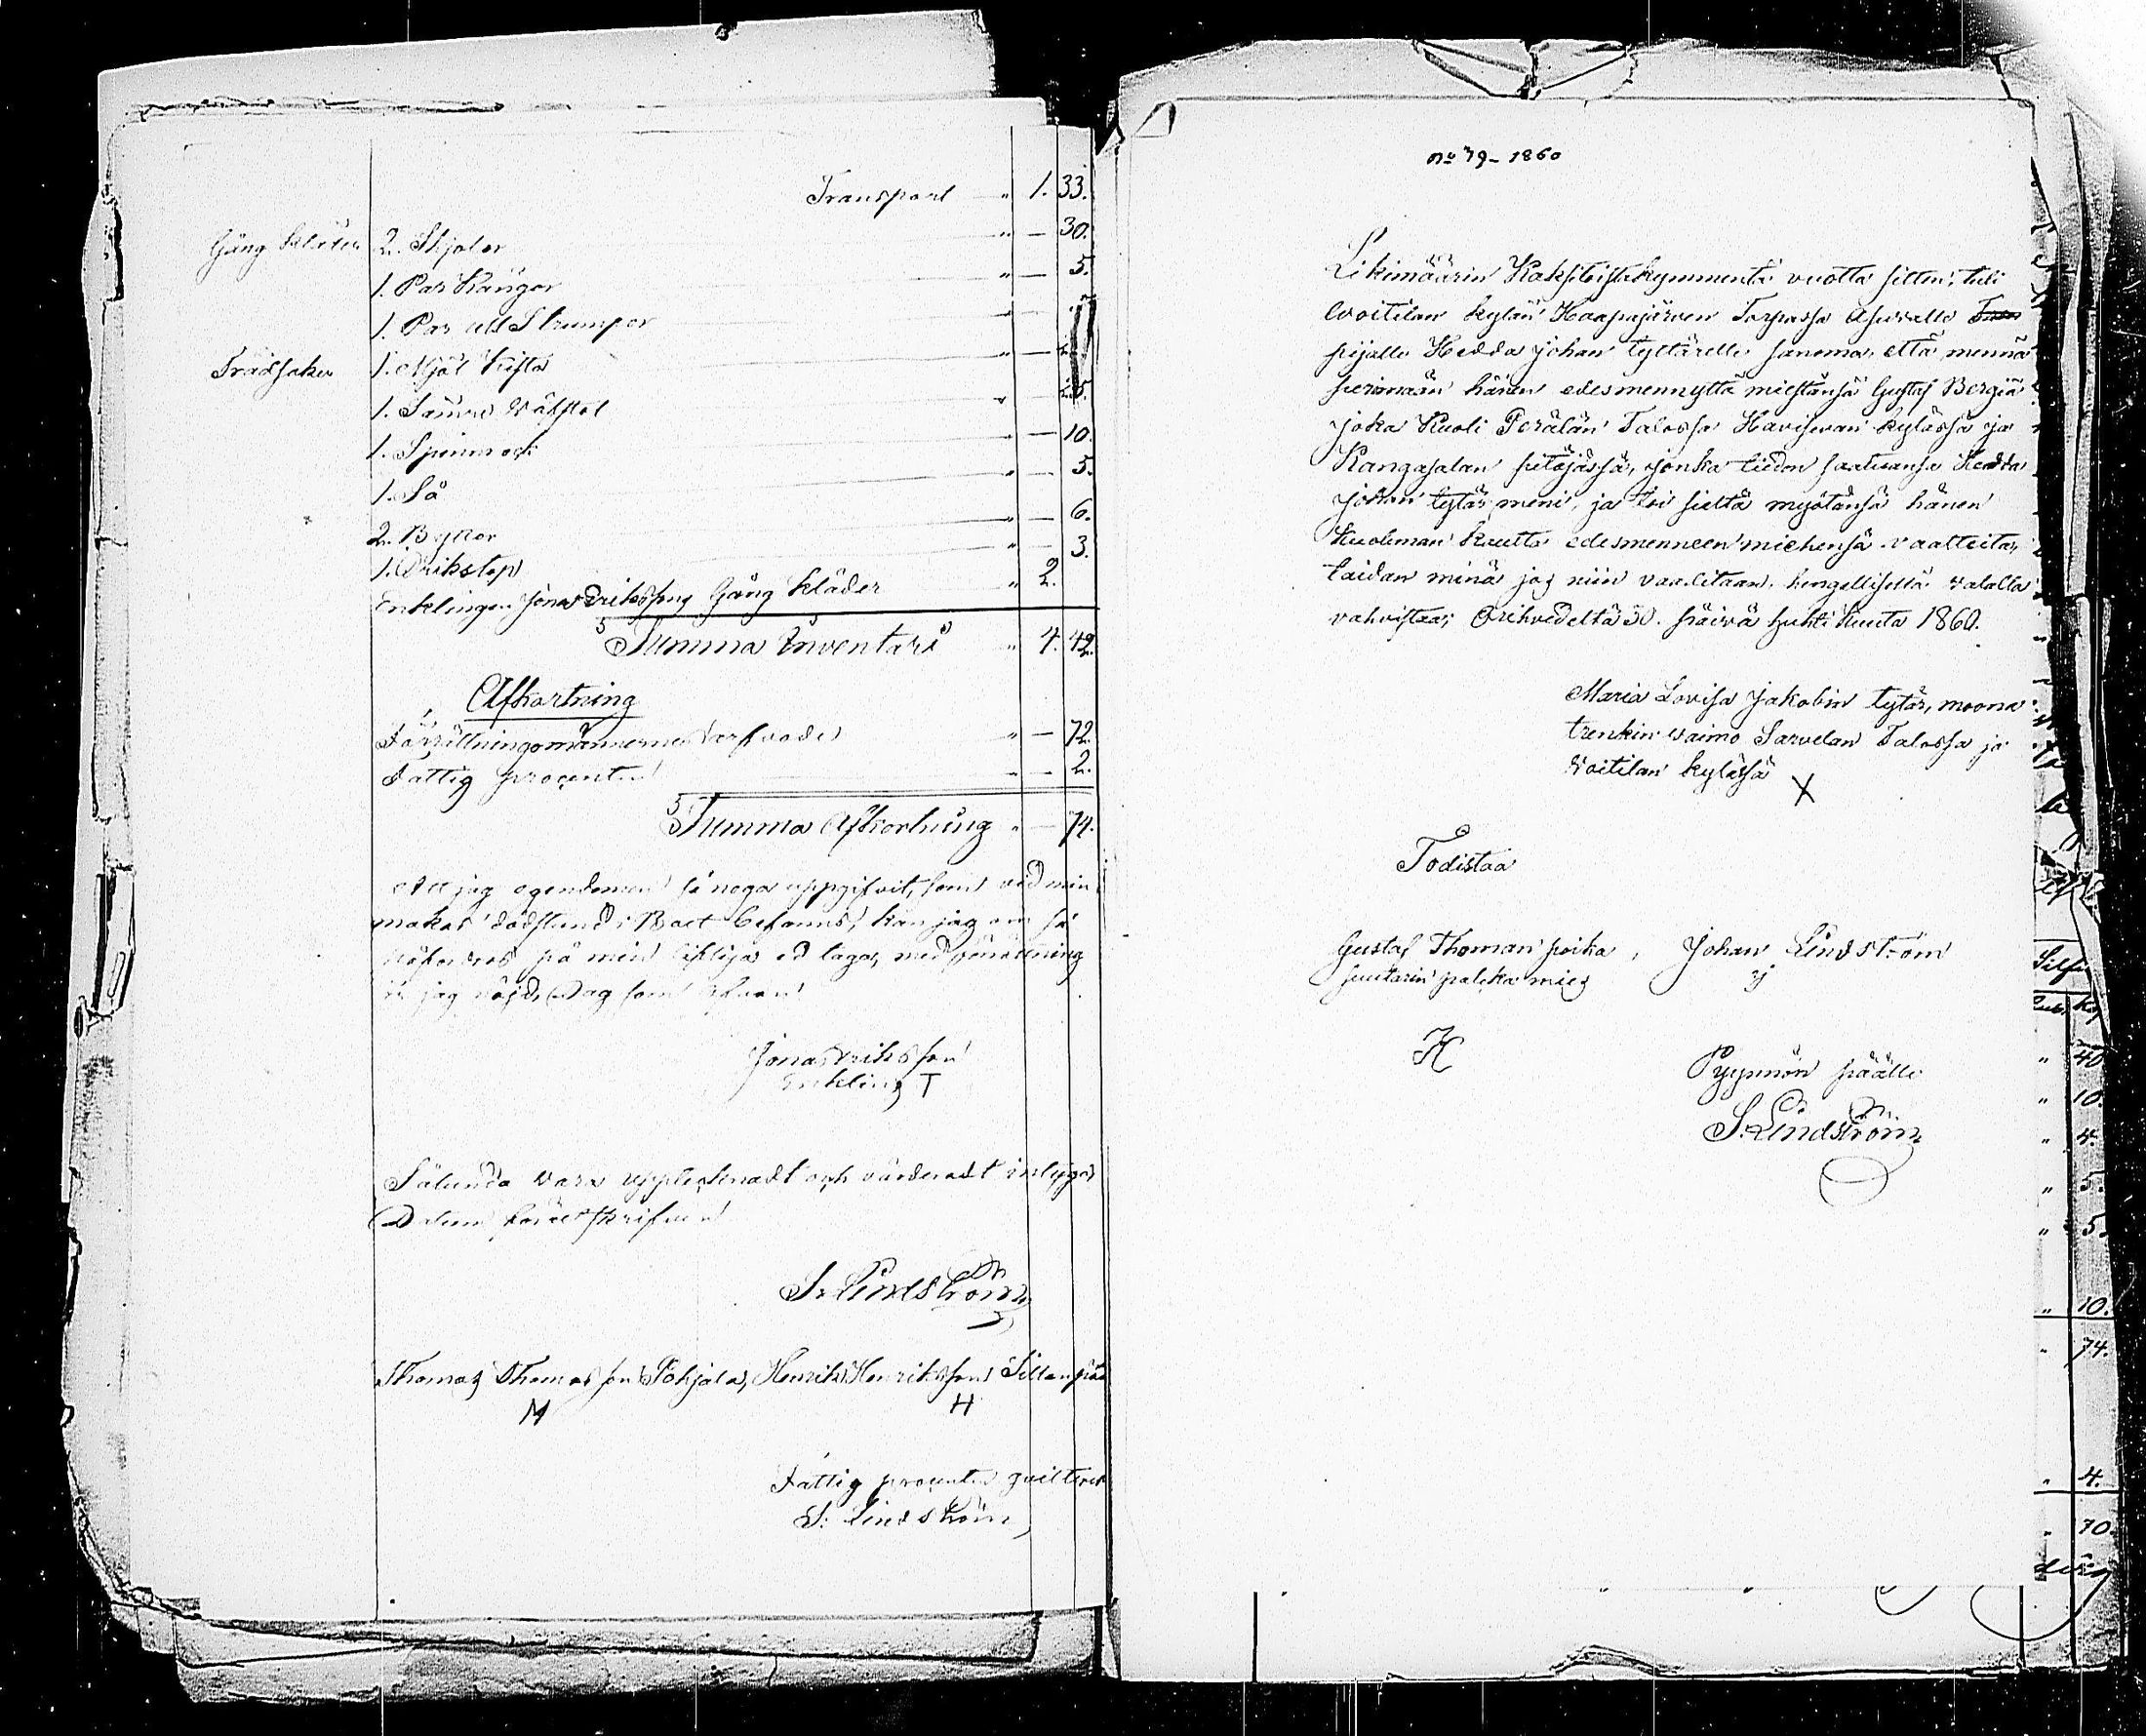 Transport " 1. 33.
Gång kläder 2. Kjolar " — 30.
1. Par Kängor " — 5.
1. Par ull Strumpor "
Trädsaker 1. Mjöl Kista " —
1. Sämre Väfstol " —
1. Spinnrock " — 10.
1. Så " — 5.
2. Byttor " — 6.
1. Drikstop " — 3.
Enklingen Jonas Erikssons Gång kläder " 2.
Summa Inventarii " 4. 42.
Afkortning
Förrättningsmännernes arfvode " — 72.
Fattig procenten " — 2.
Summa Afkortning " — 74.
Att jag egendomen så noga uppgifvit, som vid min
makas dödstund i Boet befanns, kan jag om så
påfordras på min lifliga ed taga, med förrättning
är jag nöjd, Dag som ofvan
Jonas Eriksson
Enkling T
Sålunda vara upptecknadt och värderadt intyga
Datum förutskrifven
S. Lindström
Thomas Thomasson Pohjala, Henrik Henriksson Sillanpää
M H
Fattig procenten quitteras
S. Lindström
No 79 - 1860
Likimäärin Kaksitoistakymmentä vuotta sitten, tuli
Woitilan kylän Haapajärven Torpassa Asuvalle
pijalle Hedda Johan tyttärelle sanoma, että mennä
perimään hänen edesmennyttä miestänsä Gustaf Bergiä
joka Kuoli Perälän Talossa Havisevan kylässä ja
Kangasalan pitäjässä, jonka tiedon saatuansa Hedda
Johan tytär meni, ja toi sieltä myötänsä hänen
Kuoleman kautta edesmenneen miehensä vaatteita,
taidan minä jos niin vaaditaan, hengellisellä valalla
vahvistaa; Orihvedeltä 30. päivä huhti Kuuta 1860.
Maria Lovisa Jakobin tytär, moona
trenkin waimo Sarvelan Talossa ja
Voitilan kylässä X
Todistaa
Gustaf Thoman poika, Johan Lindström
suutarin palcka mies
H
Pyynnön päälle
S. Lindström
Silf
Rub. Kop
" 40
" 10.
" 4.
" 5.
" 5.
" 10.
" 74.
" 4.
" 70.